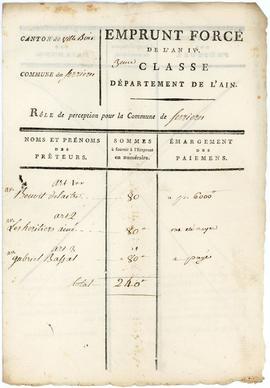 CANTON de Ville Bois
EMPRUNT FORCÉ
DE L'AN IV.
CLASSE
COMMUNE de serrieres
DÉPARTEMENT DE L'AIN.
RÔLE de perception pour la Commune de serrieres
NOMS ET PRÉNOMS
DES
PRÊTEURS.
SOMMES
à fournir à l'Emprunt
en numéraire.
ÉMARGEMENT
DES
PAIEMENS.
art 1er
Benoit 80 6000
art 2
Les heritiers 80
art 3
gabriel 80 payé
total 240